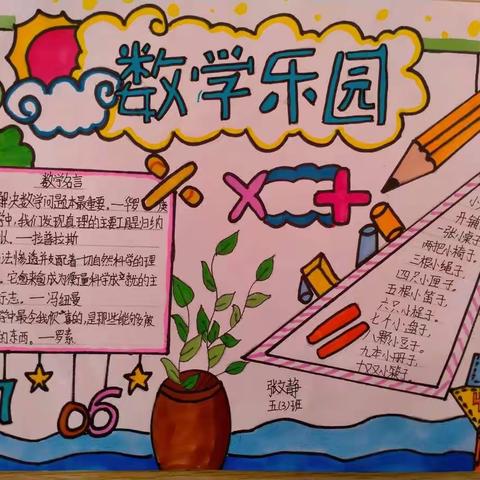 数学乐园
数学名言
解决数学问题本最重要。—华罗
学中,我们发现真理的主要工具是归纳
以。—拉普拉斯
支配着一切自然科学的理
它愈来愈成为衡量科学成就的主
志。—冯纽曼
学中最令我欣喜的,是那些能够被
的东西。—罗素
÷ × +
=
小
开铺
一张小桌子
两把小椅子.
三根小绳子.
四只小匣子.
五根小笛子.
六只小桩子.
七个小盘子,
八颗小豆子.
九本小册子.
十双小筷子.
7 06
张文静
五(3)班